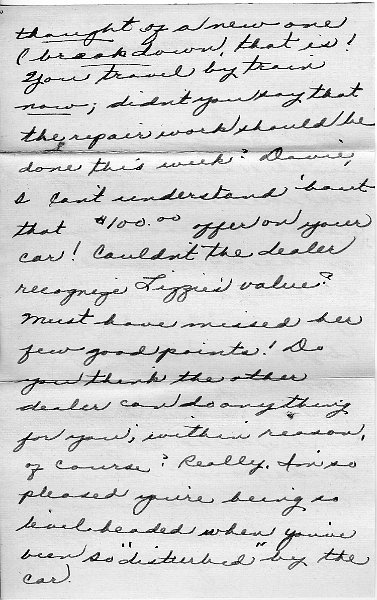 thought of a new one
(breakdown, that is!
You travel by train
now; didn't you say that
the repair work should be
done this week? Davie,
I can't understand 'bout
that $100.00 offer on your
car! Couldn't the dealer
recognize Lizzie's value?
Must have missed her
few good points! Do
you think the other
dealer can do anything
for you; within reason,
of course? Really, I'm so
pleased you're being so
level-headed when you've
been so "disturbed" by the
car.